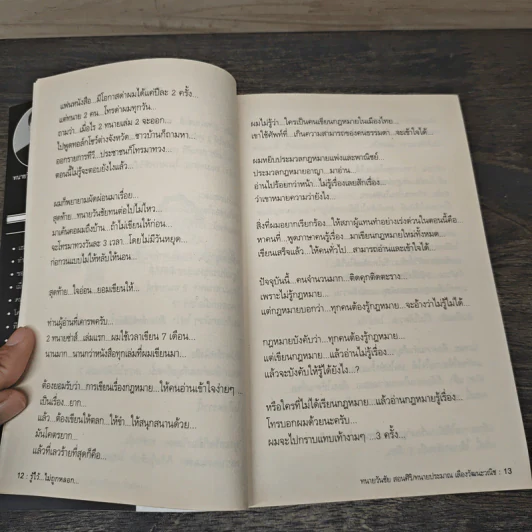 แฟนหนังสือ...มีโอกาสด่าผมได้แค่ปีละ 2 ครั้ง...
แต่ทนาย 2 คน...โทรด่าผมทุกวัน...
ถามว่า...เมื่อไร 2 ทนายเล่ม 2 จะออก...
ไปพูดทอล์คโชว์ต่างจังหวัด...ชาวบ้านก็ถามหา...
ออกรายการทีวี...ประชาชนก็โทรมาทวง...
ตอนนี้ไม่รู้จะตอบยังไงแล้ว...
ผมก็พยายามผัดผ่อนมาเรื่อย...
สุดท้าย...ทนายวันชัยทนต่อไปไม่ไหว...
มาค้นคอผมถึงบ้าน...ถ้าไม่เขียนให้ก่อน...
จะโทรมาทวงวันละ 3 เวลา...โดยไม่มีวันหยุด...
ก่อกวนแบบไม่ให้หลับให้นอน...
สุดท้าย...ใจอ่อน...ยอมเขียนให้...
ท่านผู้อ่านที่เคารพครับ...
2 ทนายซ่าส์...เล่มแรก...ผมใช้เวลาเขียน 7 เดือน...
นานมาก...นานกว่าหนังสือทุกเล่มที่ผมเขียนมา...
ต้องยอมรับว่า...การเขียนเรื่องกฎหมาย...ให้คนอ่านเข้าใจง่ายๆ...
เป็นเรื่อง...ยาก...
แล้ว...ต้องเขียนให้ตลก...ให้ขำ...ให้สนุกสนานด้วย...
มันโคตรยาก...
แล้วที่เลวร้ายที่สุดก็คือ...
12 : รู้ไว้...ไม่ถูกหลอก...
ผมไม่รู้ว่า...ใครเป็นคนเขียนกฎหมายในเมืองไทย...
เขาใช้ศัพท์ที่...เกินความสามารถของคนธรรมดา...จะเข้าใจได้...
ผมหยิบประมวลกฎหมายแพ่งและพาณิชย์...
ประมวลกฎหมายอาญา...มาอ่าน...
อ่านไปร้อยกว่าหน้า...ไม่รู้เรื่องเลยสักเรื่อง...
ว่าเขาหมายความว่ายังไง...
สิ่งที่ผมอยากเรียกร้อง...ให้สภาผู้แทนทำอย่างเร่งด่วนในตอนนี้คือ
หาคนที่...พูดภาษาคนรู้เรื่อง...มาเขียนกฎหมายใหม่ทั้งหมด...
เขียนเสร็จแล้ว...ให้คนทั่วไป...สามารถอ่านและเข้าใจได้...
ปัจจุบันนี้...คนจำนวนมาก...ติดคุกติดตะราง...
เพราะไม่รู้กฎหมาย...
แต่กฎหมายบอกว่า...ทุกคนต้องรู้กฎหมาย...จะอ้างว่าไม่รู้ไม่ได้...
กฎหมายบังคับว่า...ทุกคนต้องรู้กฎหมาย...
แต่เขียนกฎหมาย...แล้วอ่านไม่รู้เรื่อง...
แล้วจะบังคับให้รู้ได้ยังไง...?
หรือใครที่ไม่ได้เรียนกฎหมาย...แล้วอ่านกฎหมายรู้เรื่อง...
โทรบอกผมด้วยนะครับ...
ผมจะไปกราบแทบเท้างามๆ ...3 ครั้ง...
ทนายวันชัย สอนศิริ/ทนายประมาณ เลืองวัฒนะวณิช : 13